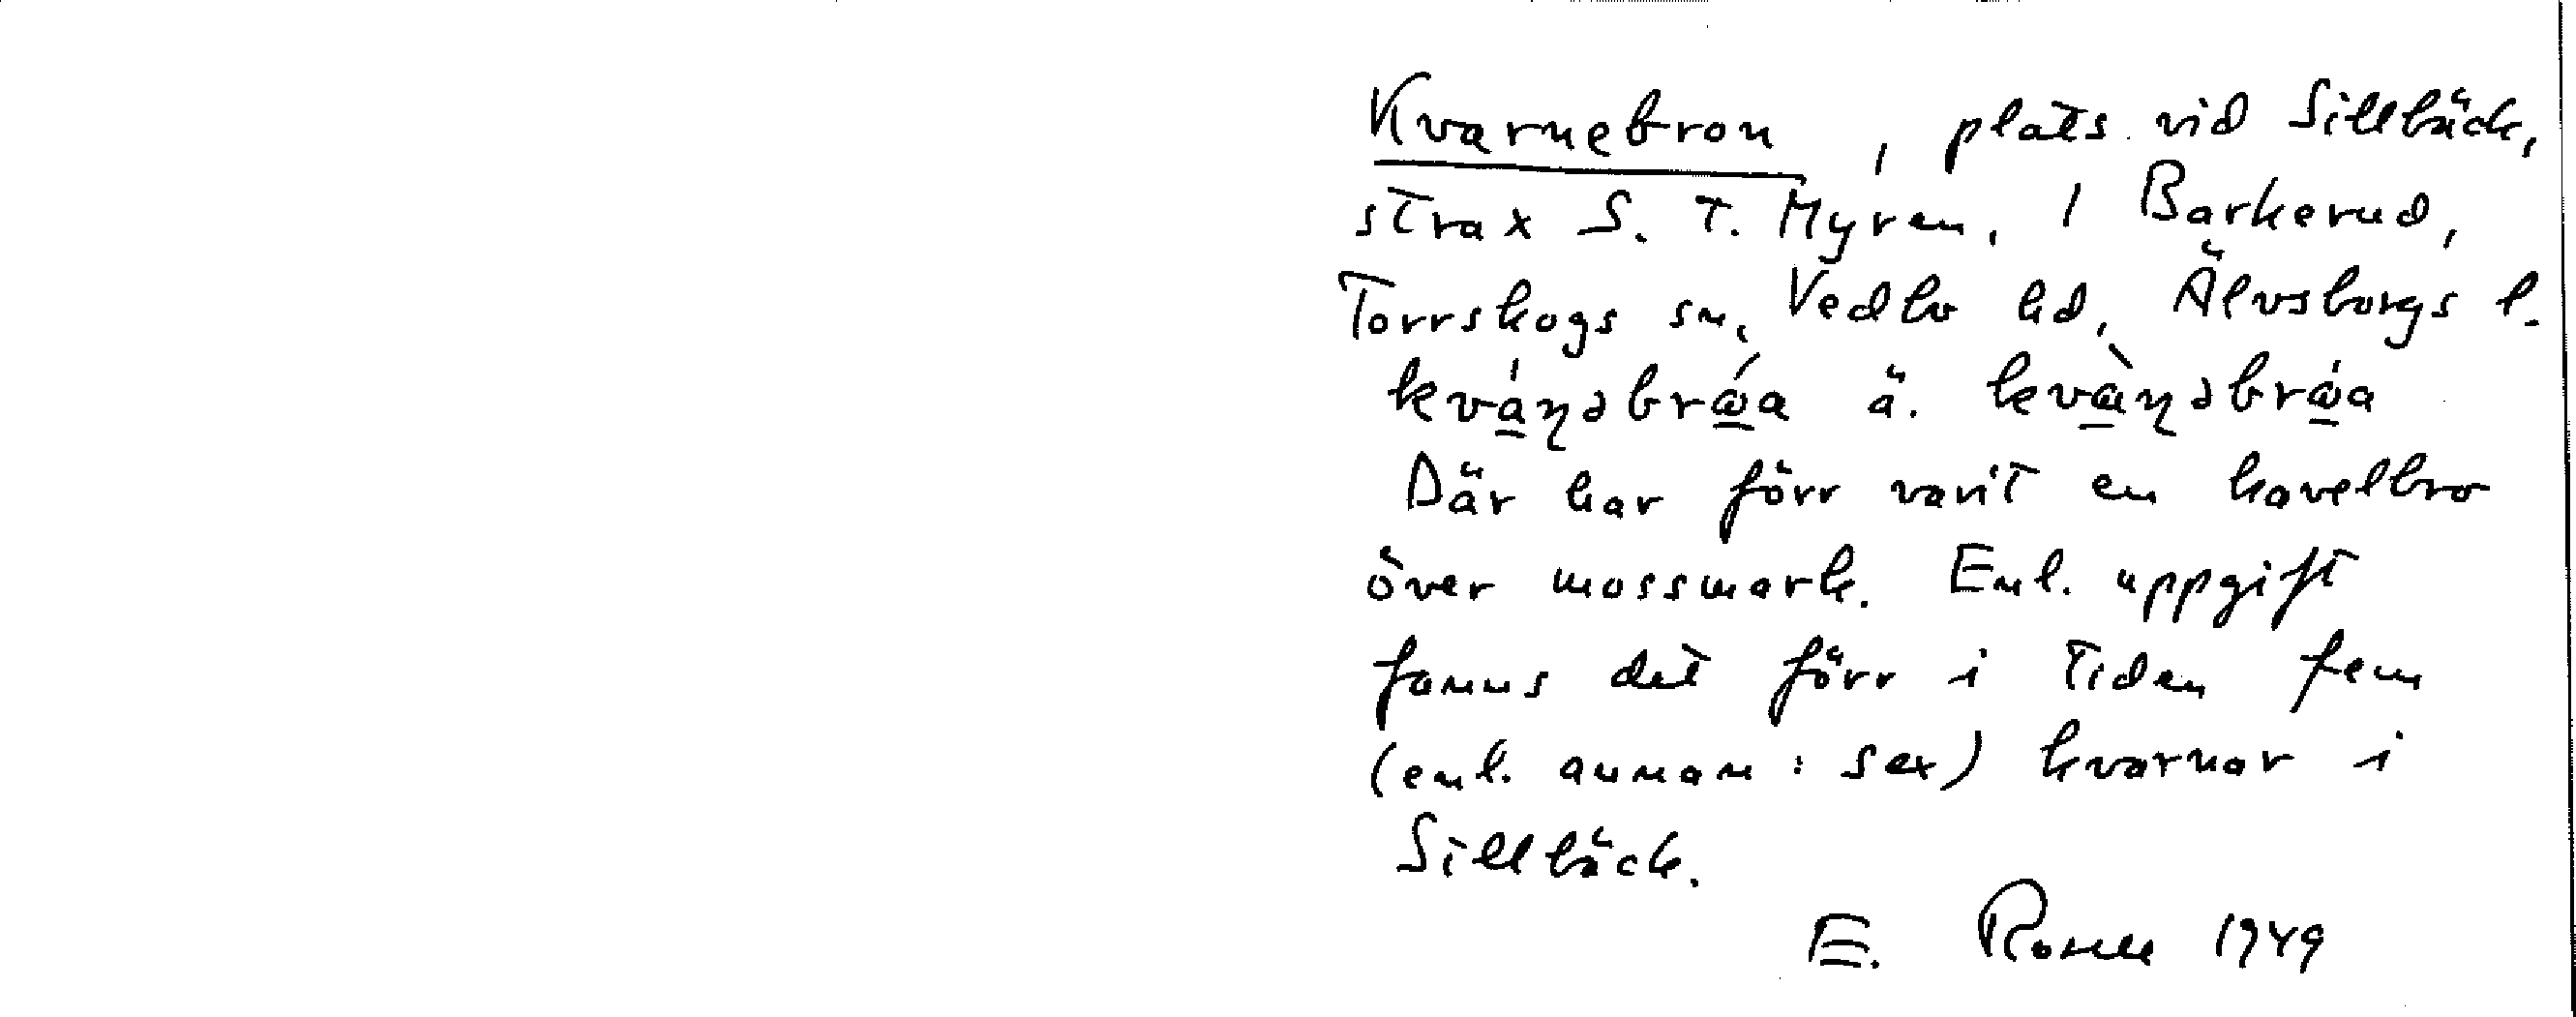 Kvarnebron, plats vid Sillbäck,
strax S. t. Myren, 1 Barkerud,
Torrskogs sn, Vedbo hd, Älvsborgs l.
Där har förr varit en kavelbro
över mossmark. Enl. uppgift
fanns det förr i tiden fem
(enl. annan: sex) kvarnar i
Sillbäck.
E. Rosell 1949